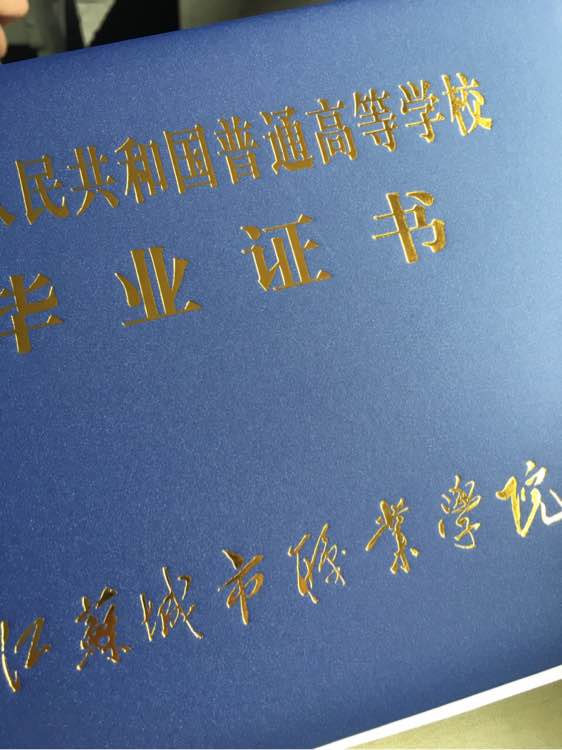 人民共和国普通高等学校
毕业证书
江蘇城市職業學院